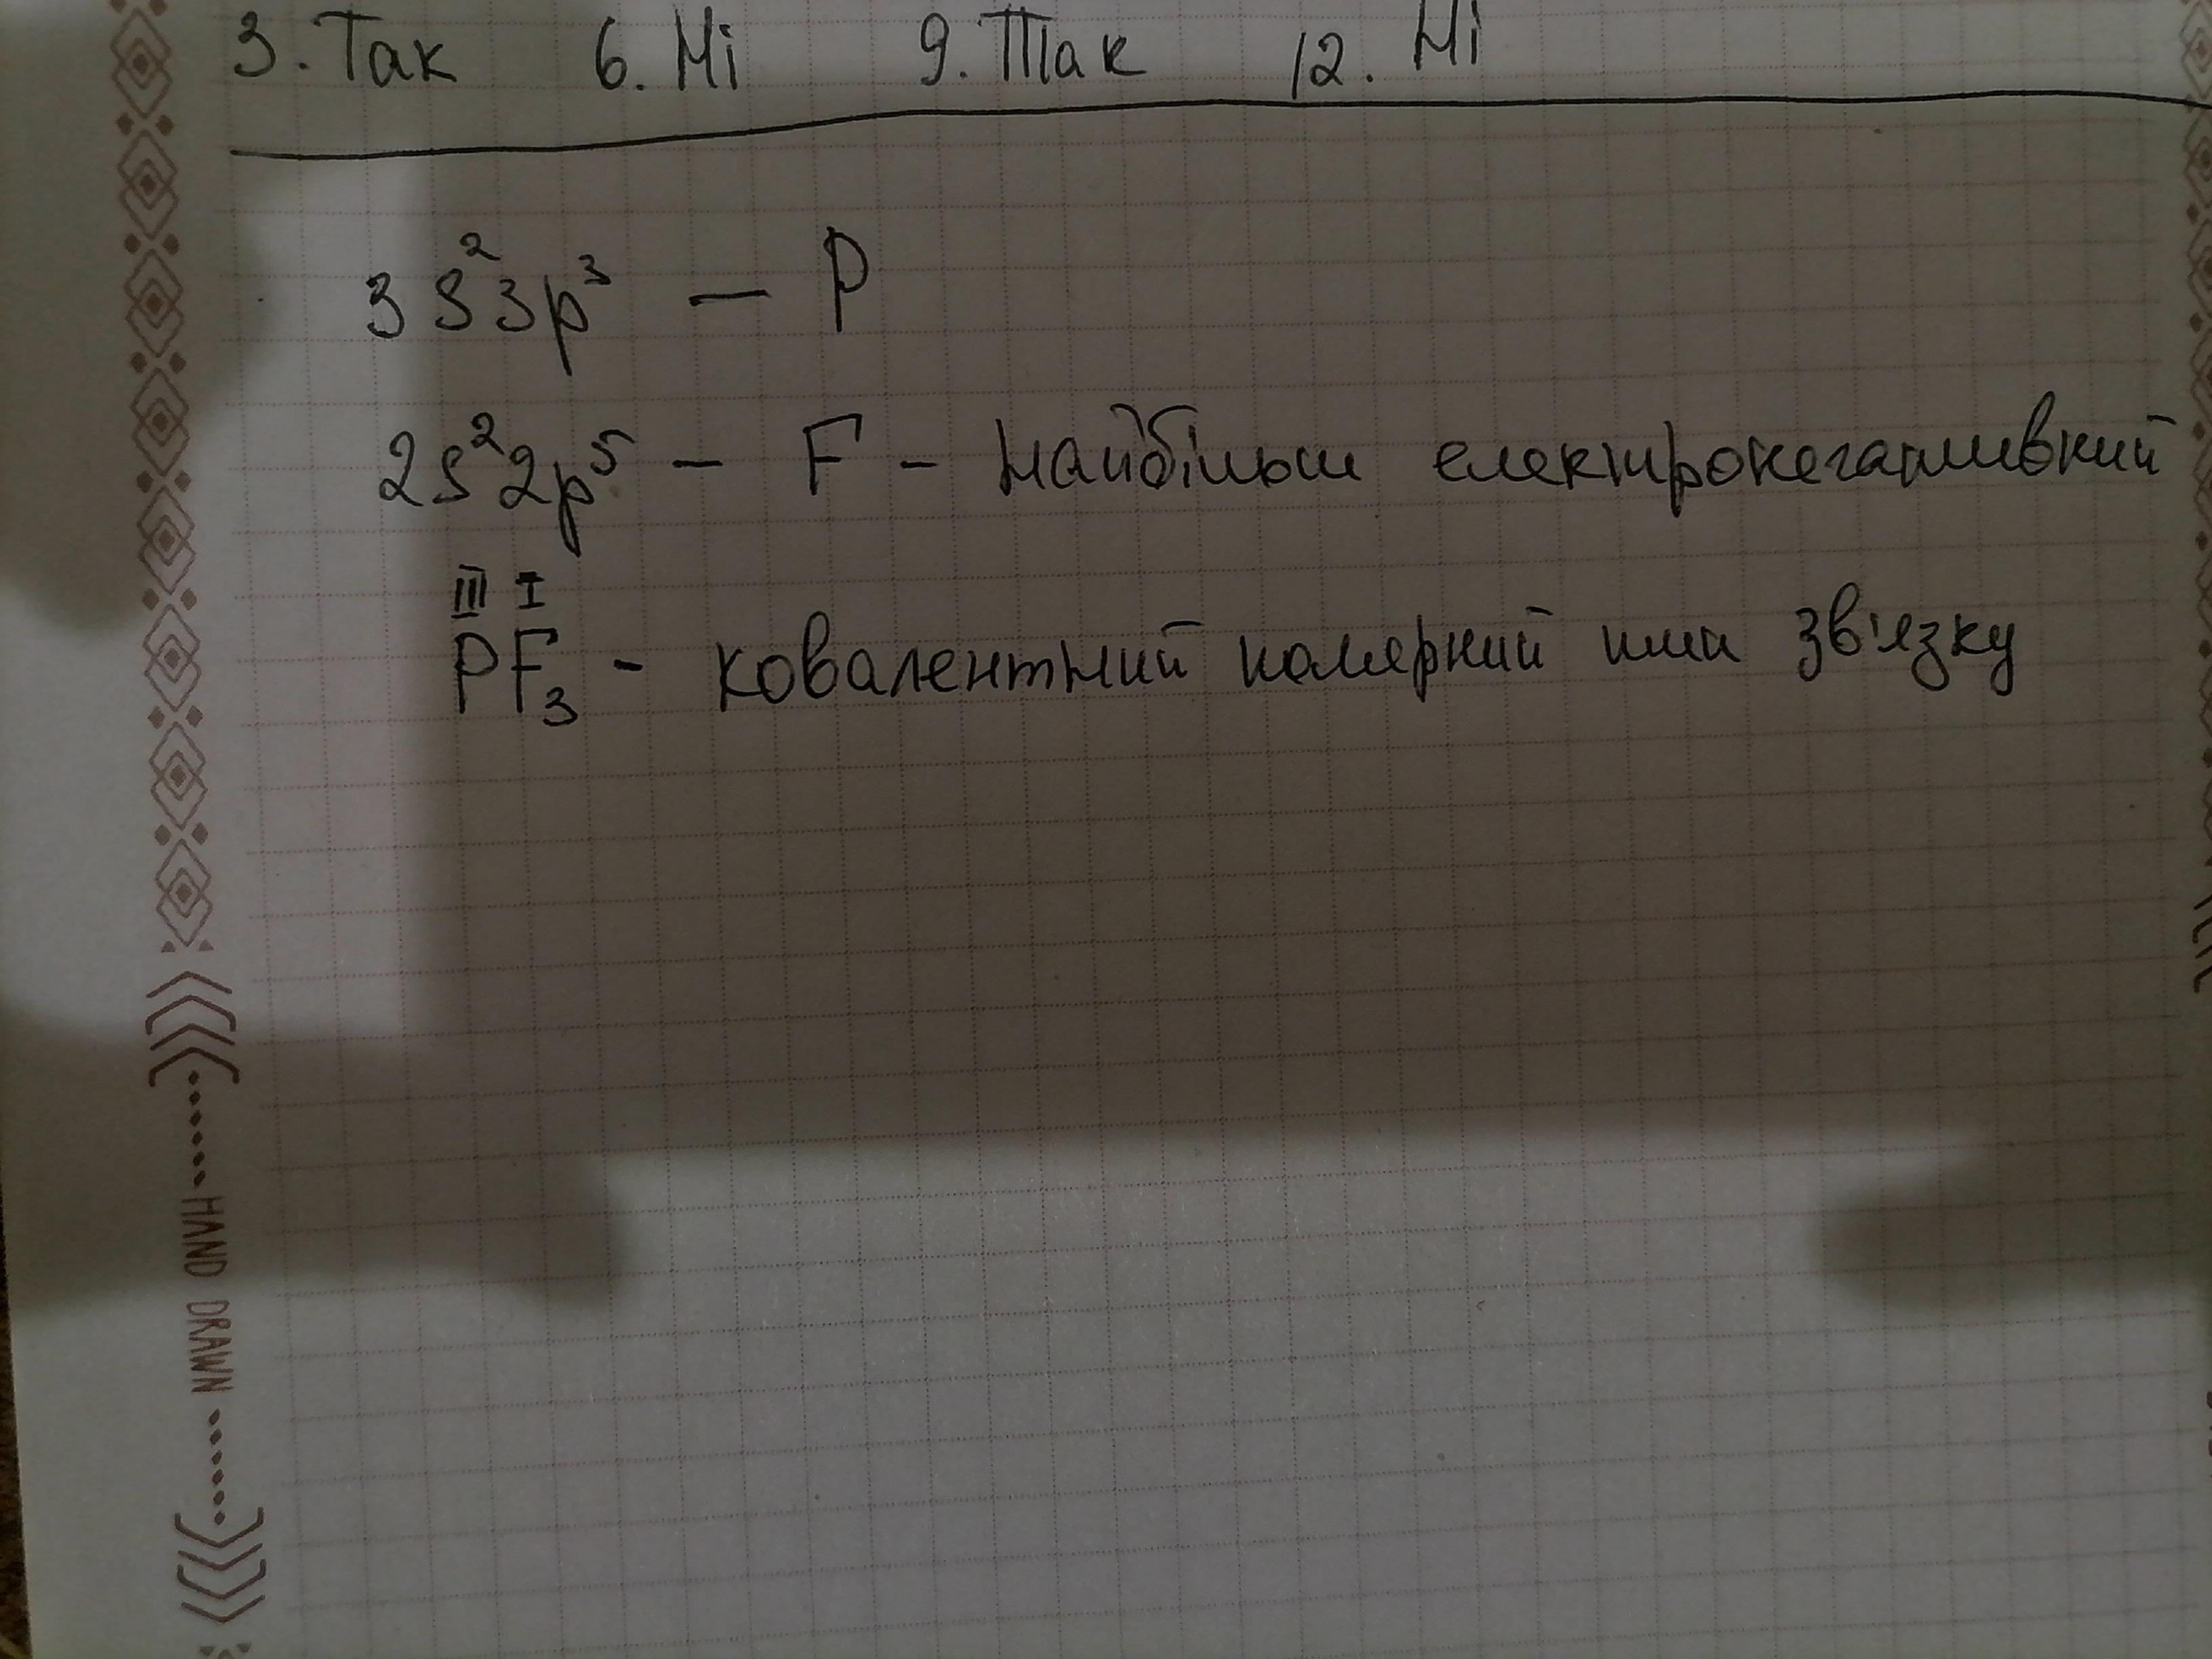 3. Так 6. Ні 9. Так 12. Ні
3s²3p³ — P
2s²2p⁵ — F – найбільш електронегативний
III I
PF₃ - ковалентний полярний тип зв'язку
HAND DRAWN